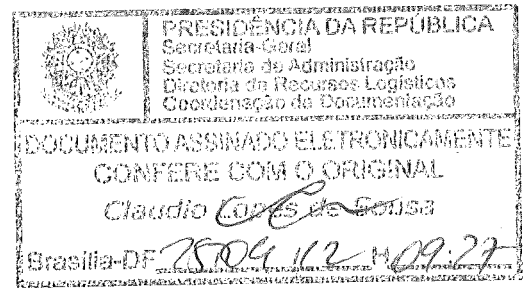 PRESIDÊNCIA DA REPÚBLICA
Secretaria-Geral
Secretaria de Administração
Diretoria de Recursos Logísticos
Coordenação de Documentação
DOCUMENTO ASSINADO ELETRONICAMENTE
CONFERE COM O ORIGINAL
Claudio Lopes de Sousa
Brasília-DF 25/04/12 H 09:27